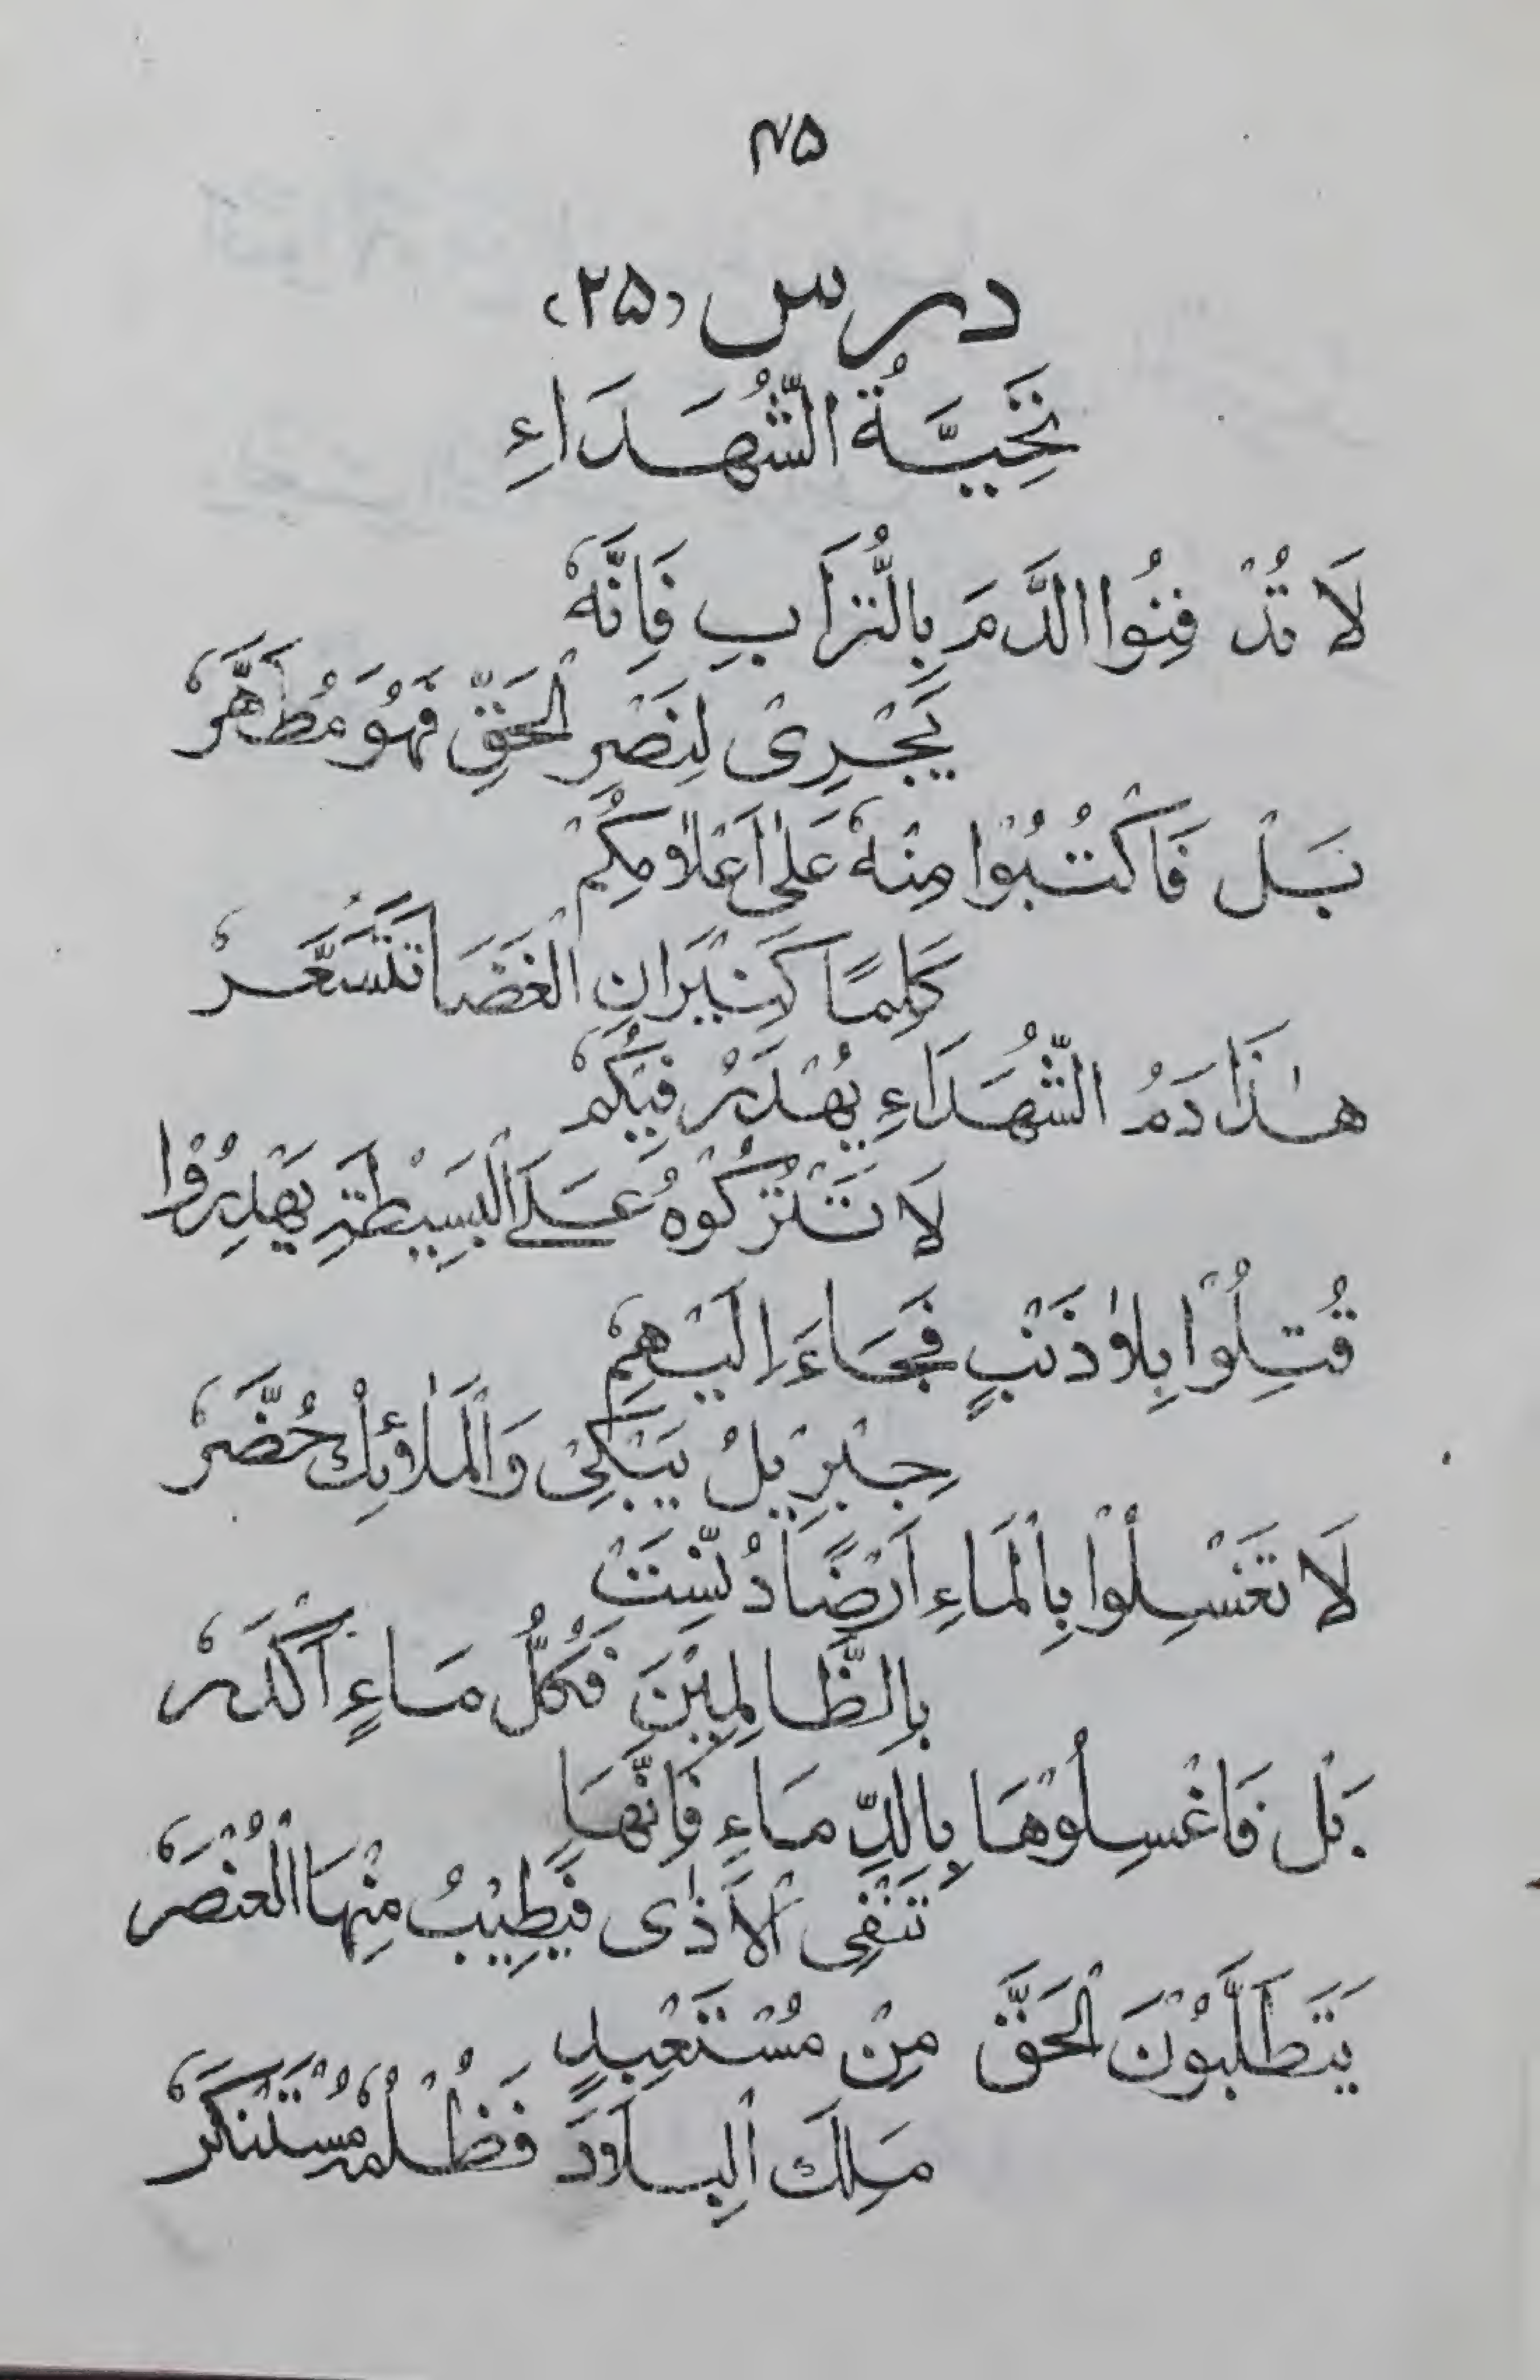 ۴۵
درس (۲۵)
نَحِيَّةُ الشُّهَدَاءِ
لَا تُدْفِنُوا الدَّمَ بِالتُّرَابِ فَاِنَّهٗ
يَجْرِىْ لِنَصْرِ الْحَقِّ فَهُوَ مُطَهَّرٗ
بَلْ فَاكْتُبُوْا مِنْهٗ عَلٰى اَعْلَامِكُمْ
كَلِمًا كَنِيْرَانِ الْغَضَا تَتَسَعَّرٗ
هٰذَا دَمُ الشُّهَدَاءِ يُهْدَرُ فِيْكُمْ
لَا تَتْرُكُوْهُ عَلَى الْبَسِيْطَةِ يَهْدِرُوْا
قُتِلُوْا بِلَا ذَنْبٍ فَجَاءَ اِلَيْهِمْ
جِبْرِيْلُ يَبْكِىْ وَالْمَلَائِكُ حُضَّرٗ
لَا تَغْسِلُوْا بِالْمَاءِ اَرْضًا دُنِّسَتْ
بِالظَّالِمِيْنَ فَكُلُّ مَاءٍ اَكْدَرٗ
بَلْ فَاغْسِلُوْهَا بِالدِّمَاءِ فَاِنَّهَا
تَنْفِى الْاَذٰى فَيَطِيْبُ مِنْهَا الْعُنْصَرٗ
يَتَطَلَّبُوْنَ الْحَقَّ مِنْ مُسْتَعْبِدٍ
مَلِكَ الْبِلَادَ فَظُلْمُهٗ مُسْتَنْكَرٗ